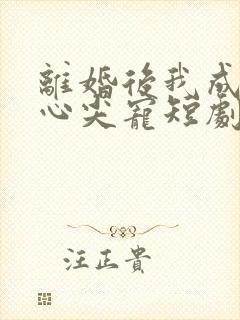 離婚後我成
心尖寵短劇
汪正貴